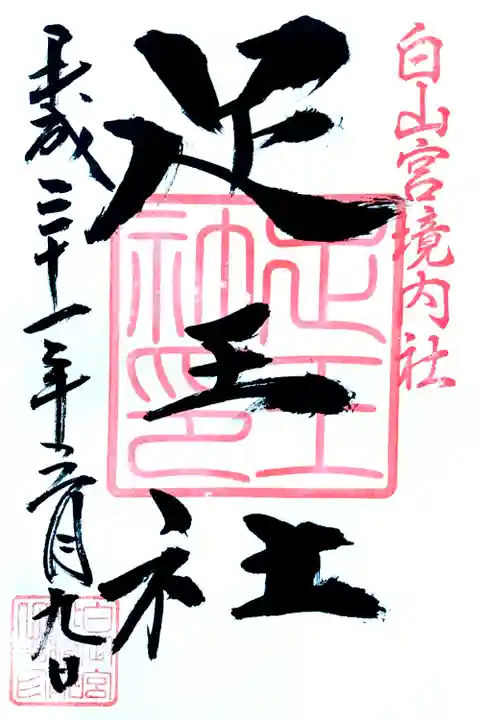 白山宮境内社
足王社
足王神印
平成三十一年二月九日
白山宮